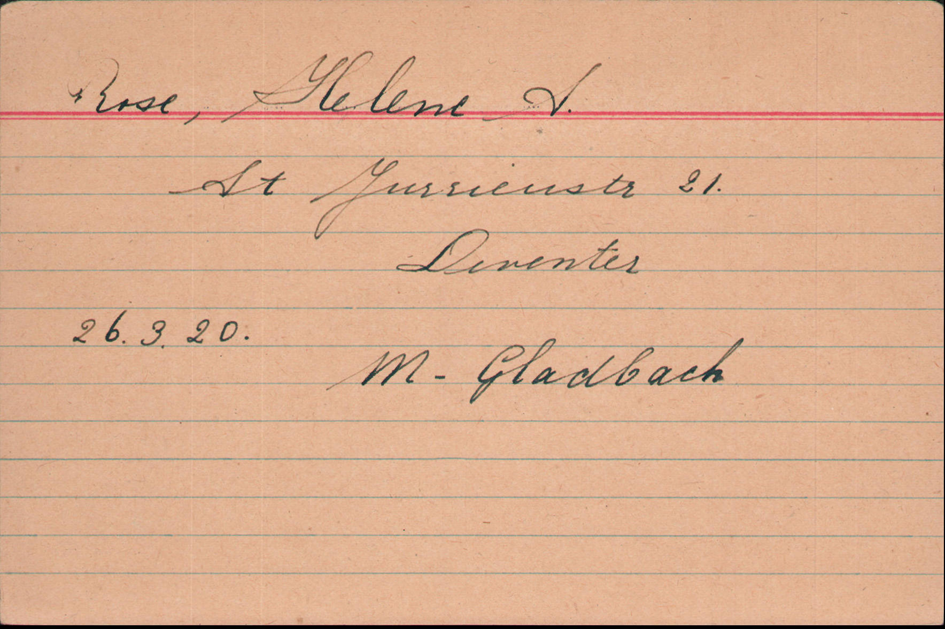 Rose, Helene S.
St Jurrienstr 21.
Deventer
26.3.20.
M-Gladbach